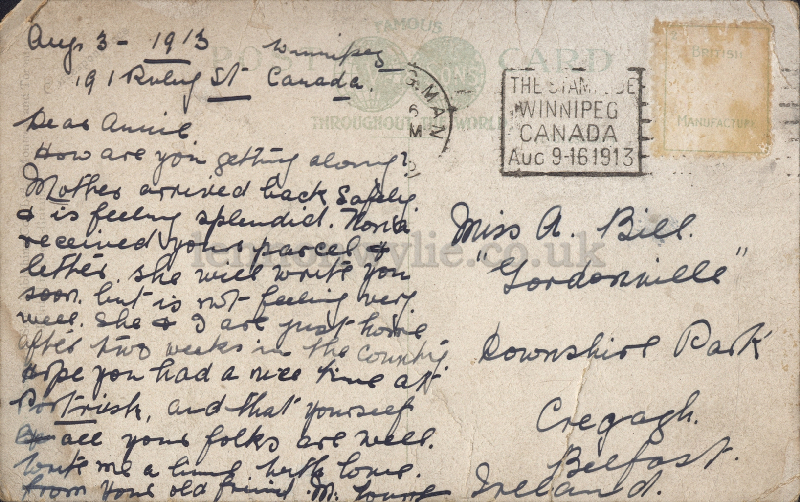 Aug 3 - 1913 Winnipeg
191 St Canada.
Dear Annie
How are you getting along?
Mother arrived back Safely
& is feeling splendid. Nora
received your parcel &
letter. She will write you
soon. but is not feeling very
well. She & I are just home
after two weeks in the country
Hope you had a nice time at
Portrush, and that yourself
& all your folks are well.
Write me a line with love.
from your old friend. M. Young
FAMOUS
POST CARD
THROUGHOUT THE WORLD
GMAN
6
M
THE STAMPEDE
WINNIPEG
CANADA
AUG 9-16 1913
MANUFACTUR
Miss A. Bill.
"Gordonville"
Downshire Park
Cregagh.
Belfast.
Ireland.